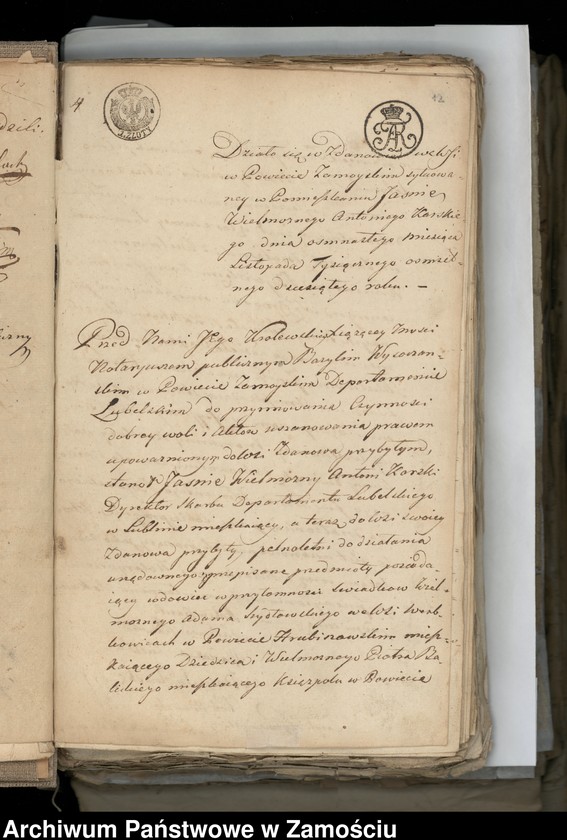 4
12
1.ZŁOTY
dzili.
Działo się w Zdanowie wsi
w Powiecie Zamoyskim sytuowa
ney w Pomieszkaniu Jaśnie
Wielmożnego Antoniego Karskie
go dnia osmnastego miesiąca
Listopada Tysiącznego osmset-
nego dziesiątego roku. —
Przed Nami Jego Krolewsko Xiążęcey Mosci
Notaryuszem publicznym Bazylim
skim w Powiecie Zamoyskim Departamencie
Lubelskim do przyimowania Czynnosci
dobrey woli i Aktów uznanowania prawem
upoważnionym do wsi Zdanowa przybyłym,
stanoł Jaśnie Wielmożny Antoni Karski
Dyrektor Skarbu Departamentu Lubelskiego
w Lublinie mieszkaiący, a teraz do wsi swoiey
Zdanowa przybyły, pełnoletni do działania
urzędownego przepisane przedmioty posiada-
iący w przytomnosci Swiadkow Wiel-
możnego Adama we wsi Werb-
kowicach w Powiecie Hrubieszowskim miesz-
kaiącego Dziedzica i Wielmożnego Piotra Ba
lickiego mieszkaiącego Księzpolu w Powiecie
Archiwum Państwowe w Zamościu